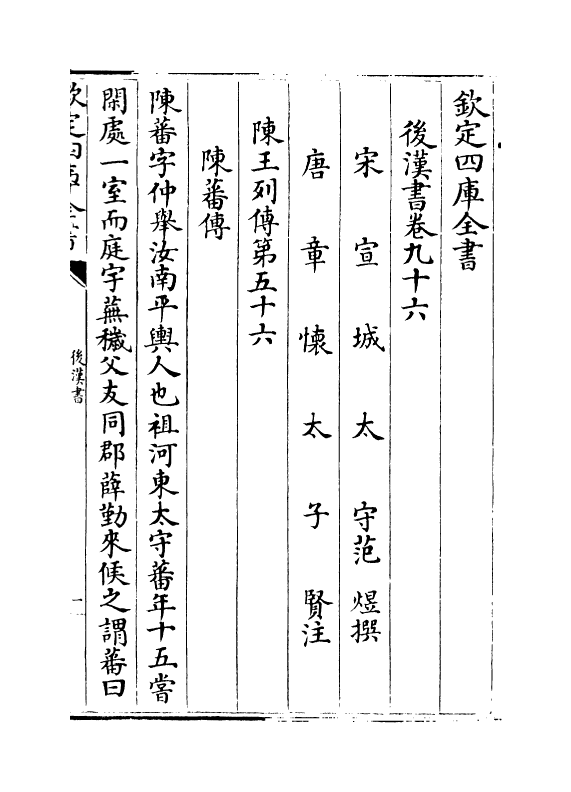 欽定四庫全書
後漢書卷九十六
宋宣城太守范煜撰
唐章懷太子賢注
陳王列傳第五十六
陳蕃傳
陳蕃字仲舉汝南平輿人也祖河東太守蕃年十五嘗
閑處一室而庭宇蕪穢父友同郡薛勤來候之謂蕃曰
欽定四庫全書
後漢書
一